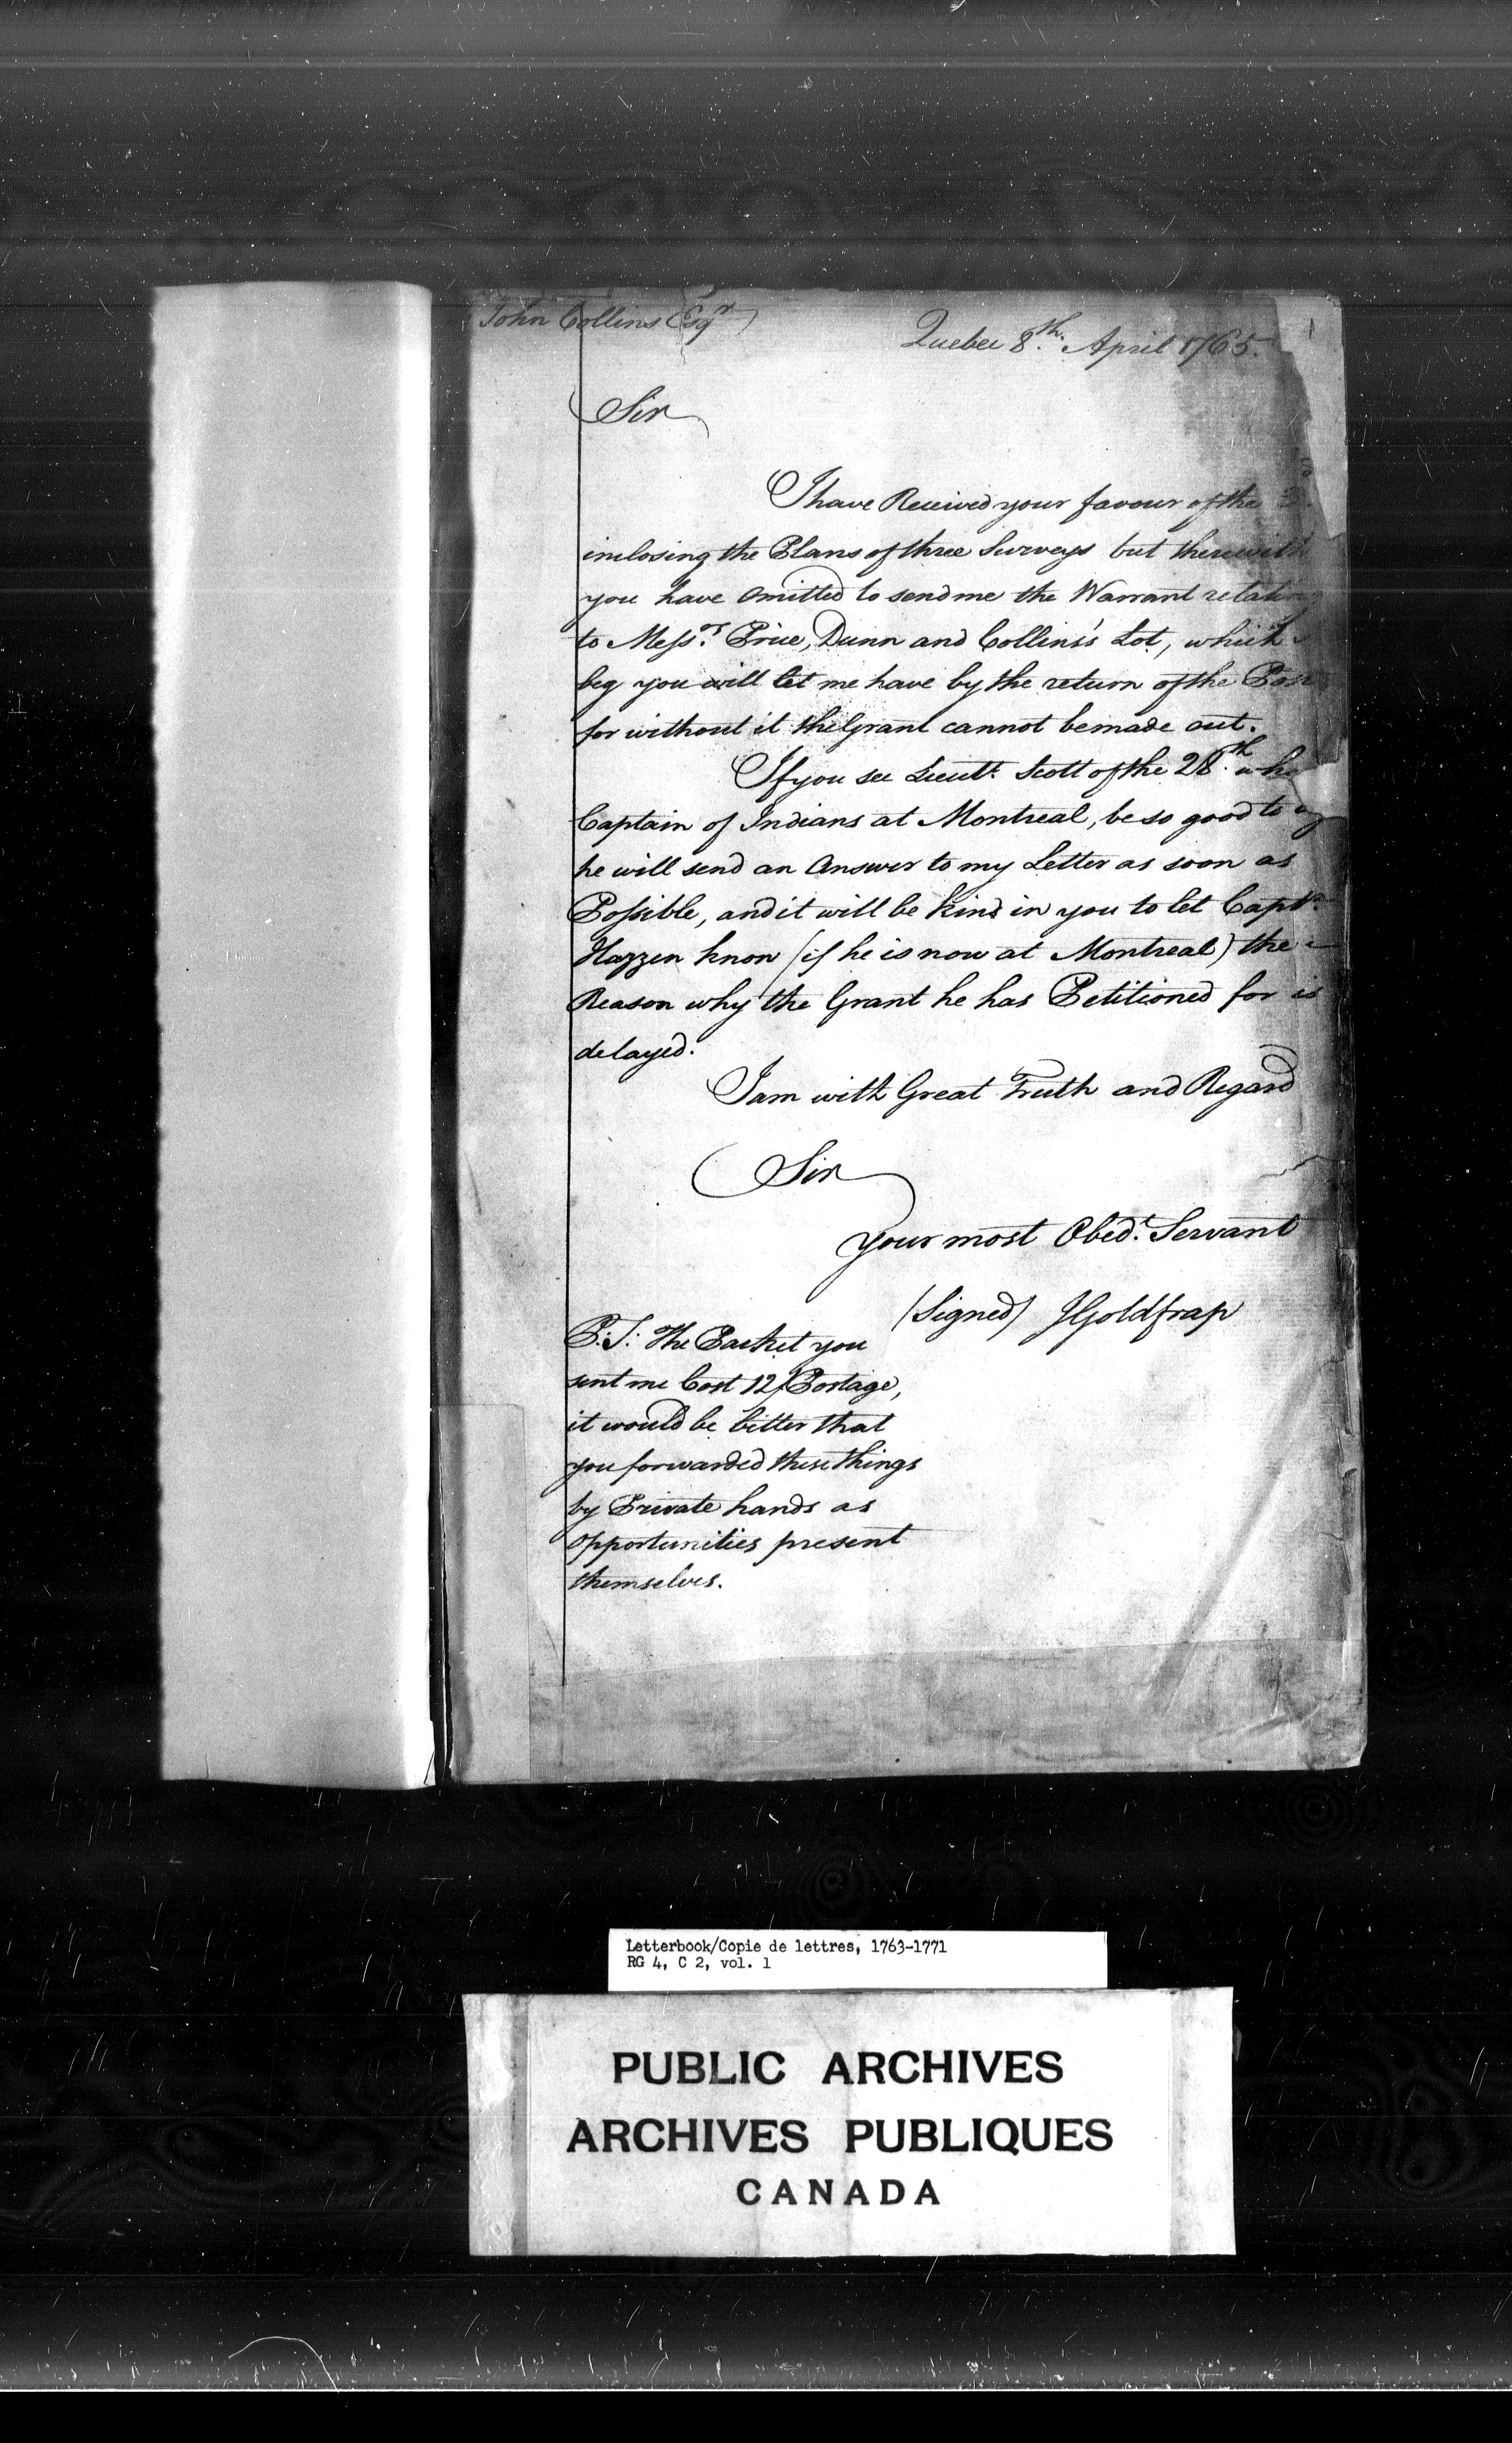 John Collins Esqr
Quebec 8th. April 1765.
Sir
I have Received your favour of the
inclosing the Plans of three Surveys but therewith
you have Omitted to send me the Warrant relating
to Messrs. Price, Dunn and Collins's Lot, which
beg you will let me have by the return of the Post
for without it the Grant cannot be made out.
If you see Lieutt. Scott of the 28th. who
Captain of Indians at Montreal, be so good to
he will send an Answer to my Letter as soon as
Possible, and it will be kind in you to let Captn.
Hazzen know (if he is now at Montreal) the
Reason why the Grant he has Petitioned for is
delayed.
I am with Great Truth and Regard
Sir
Your most Obedt. Servant
(Signed) JGoldfrap
P.S: The Packet you
sent me Cost 12/ Postage,
it would be better that
you forwarded these things
by Private hands as
Opportunities present
themselves.
Letterbook/Copie de lettres, 1763-1771
RG 4, C 2, vol. 1
PUBLIC ARCHIVES
ARCHIVES PUBLIQUES
CANADA